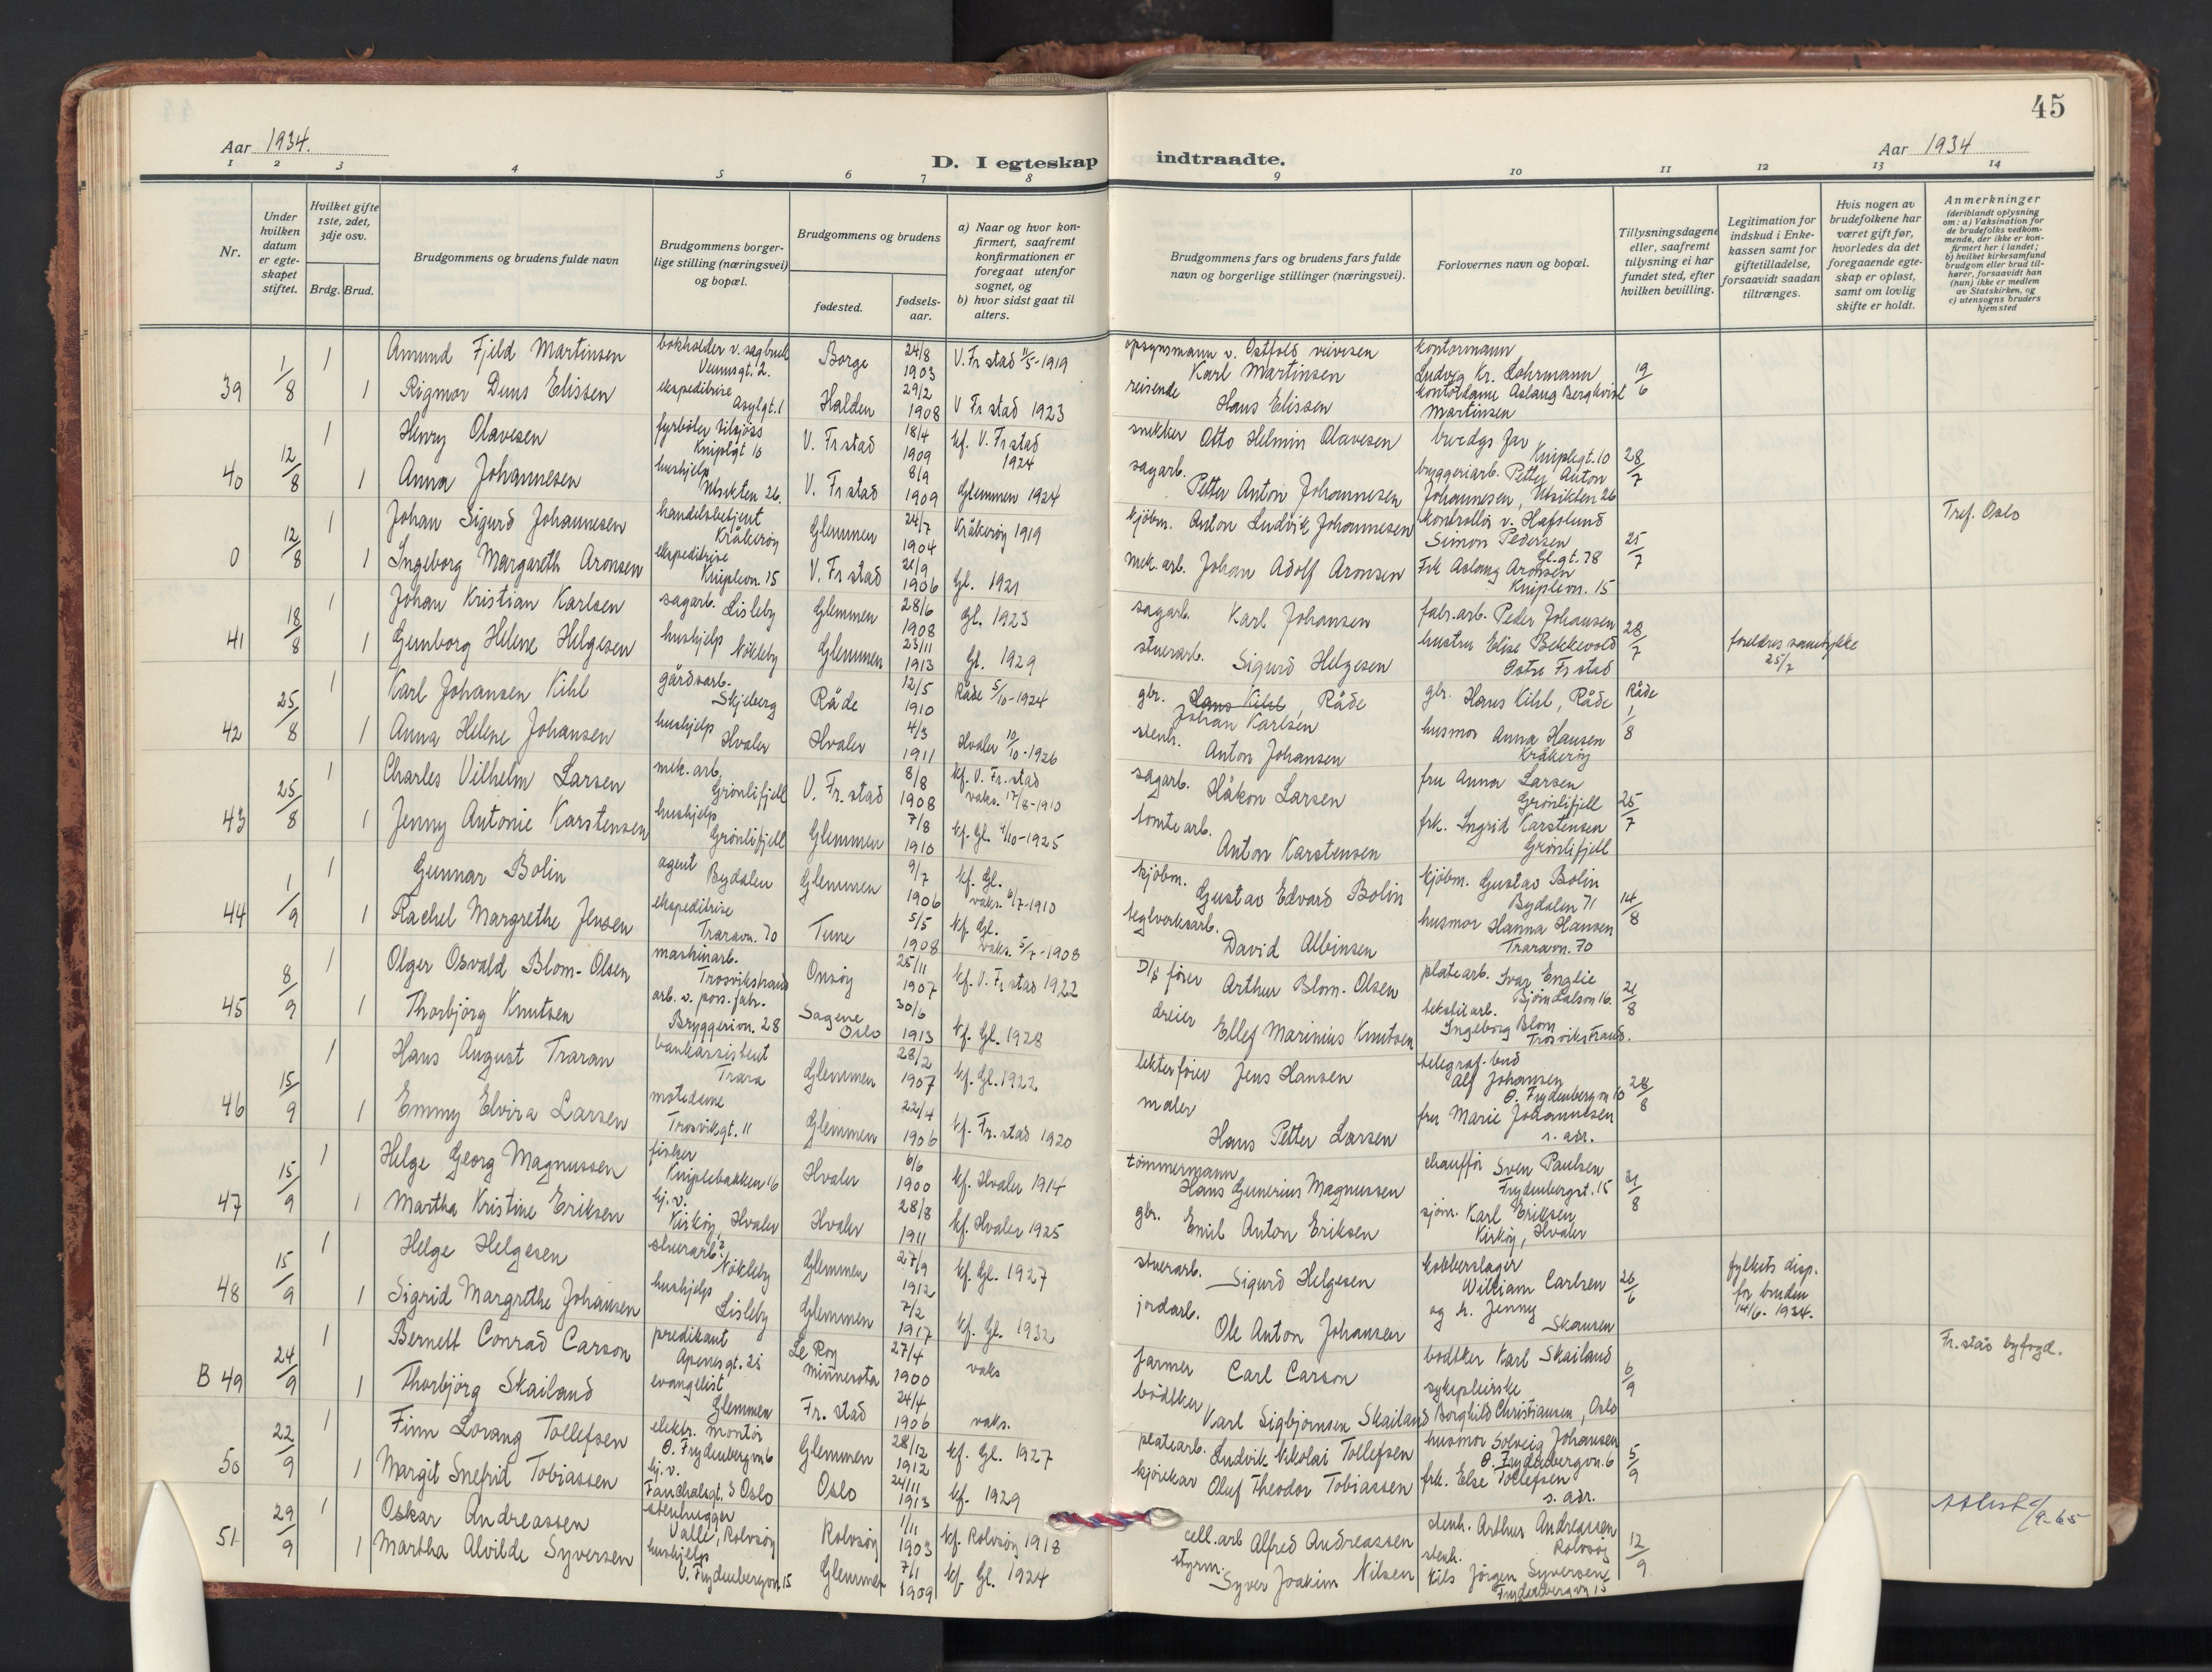 45
Aar 1934.
D. I egteskap indtraadte.
Aar 1934
1 2 3 4 5 6 7 8 9 10 11 12 13 14
Nr.
Under hvilken datum er egteskapet stiftet.
Hvilket gifte 1ste, 2det, 3dje osv.
Brdg. Brud.
Brudgommens og brudens fulde navn
Brudgommens borgerlige stilling (næringsvei) og bopæl.
Brudgommens og brudens
fødested.
fødselsaar.
a) Naar og hvor konfirmert, saafremt konfirmationen er foregaat utenfor sognet, og
b) hvor sidst gaat til alters.
Brudgommens fars og brudens fars fulde navn og borgerlige stillinger (næringsvei).
Forlovernes navn og bopæl.
Tillysningsdagene eller, saafremt tillysning ei har fundet sted, efter hvilken bevilling.
Legitimation for indskud i Enkekassen samt for giftetilladelse, forsaavidt saadan tiltrænges.
Hvis nogen av brudefolkene har været gift før, hvorledes da det foregaaende egteskap er opløst, samt om lovlig skifte er holdt.
Anmerkninger
(deriblandt oplysning om: a) Vaksination for de brudefolks vedkommende, der ikke er konfirmert her i landet; b) hvilket kirkesamfund brudgom eller brud tilhører, forsaavidt han (hun) ikke er medlem av Statskirken, og c) utensogns bruders hjemsted
39 1/8 1 Amund Fjeld Martinsen bokholder v. sagbruk Venusgt. 2. Borge 24/8 1903 V. Fr stad 11/5-1919 opsynsmann v. Østfold veivesen Karl Martinsen kontormann Ludvig Kr. Lohrmann 19/6
1 Rigmor Duus Elissen ekspeditrise Asylgt. 1 Halden 29/2 1908 V Fr stad 1923 reisende Hans Elissen kontordame Aslaug Bergkvist Martinsen
40 12/8 1 Henry Olavesen fyrbøter tilsjøss Kniplgt 10 V. Fr stad 18/4 1909 kf. V. Fr stad 1924 snekker Otto Helmin Olavesen brudgs far Kniplegt. 10 28/7
1 Anna Johannesen hushjelp Utsikten 26. V. Fr stad 8/9 1909 Glemmen 1924 sagarb. Petter Anton Johannesen bryggeriarb. Petter Anton Johannesen, Utsikten 26
0 12/8 1 Johan Sigurd Johannesen handelsbetjent Kråkerøy Glemmen 24/7 1904 Kråkerøy 1919 kjøbm. Anton Ludvik Johannesen kontrollør v. Hafslund Simon Pedersen Gl.gt. 78 25/7 Tref. Oslo
1 Ingeborg Margareth Aronsen ekspeditrise Kniplevn. 15 V. Fr stad 21/9 1906 Gl. 1921 mek. arb. Johan Adolf Aronsen Frk Aslaug Aronsen Kniplevn. 15
41 18/8 1 Johan Kristian Karlsen sagarb. Lisleby Glemmen 28/6 1908 Gl. 1923 sagarb. Karl Johansen fabr. arb. Peder Johansen 28/7 foreldres samtykke 25/7
1 Gunborg Helene Helgesen hushjelp Nøkleby Glemmen 23/11 1913 Gl. 1929 stuerarb. Sigurd Helgesen hustru Elise Bekkevold Østre Fr stad
42 25/8 1 Karl Johansen Kihl gårdsarb. Skjeberg Råde 12/5 1910 Råde 5/10-1924 gbr. Hans Kihl, Råde Johan Karlsen gbr. Hans Kihl, Råde Råde 1/8
1 Anna Helene Johansen hushjelp Hvaler Hvaler 4/3 1911 Hvaler 10/10-1926 stenh. Anton Johansen husmor Anna Hansen Kråkerøy
43 25/8 1 Charles Vilhelm Larsen mek. arb. Grønlifjell V. Fr. stad 8/8 1908 kf. V. Fr. stad vaks. 17/8-1910 sagarb. Håkon Larsen fru Anna Larsen Grønlifjell 25/7
1 Jenny Antonie Karstensen hushjelp Grønlifjell Glemmen 7/8 1910 kf. Gl. 4/10-1925 tomtearb. Anton Karstensen frk. Ingrid Karstensen Grønlifjell
44 1/9 1 Gunnar Bolin agent Bydalen Glemmen 9/7 1906 kf. Gl. vaks. 6/7-1910 kjøbm. Gustav Edvard Bolin kjøbm. Gustav Bolin Bydalen 71 14/8
1 Rachel Margrethe Jensen ekspeditrise Traravn. 70 Tune 5/5 1908 kf. Gl. vaks. 5/7-1908 teglverksarb. David Albinsen husmor Hanna Hansen Traravn. 70
45 8/9 1 Olger Osvald Blom-Olsen maskinarb. Trosvikstrand Onsøy 25/11 1907 kf. V. Fr stad 1922 D/s fører Arthur Blom-Olsen platearb. Ivar Englie Bjørndalson 16. 21/8
1 Thorbjørg Knutsen arb. v. pors. fabr. Bryggerivn. 28 Sagene Oslo 30/6 1913 kf. Gl. 1928 dreier Ellef Marinius Knutsen tekstilarb. Ingeborg Blom Trosvikstrand.
46 15/9 1 Hans August Traran bankassistent Trara Glemmen 28/2 1907 kf. Gl. 1922 lekterfører Jens Hansen telegraf-bud Alf Johansen Ø. Frydenbergvn 10 28/8
1 Emmy Elvira Larsen motedame Trosviksgt. 11 Glemmen 22/4 1906 kf. Fr. stad 1920 maler Hans Petter Larsen fru Marie Johannesen s. adr.
47 15/9 1 Helge Georg Magnussen fisker Kniplebakken 16 Hvaler 6/6 1900 kf. Hvaler 1914 tømmermann Hans Gunerius Magnussen chauffør Sven Paulsen Frydenbergst. 15 31/8
1 Martha Kristine Eriksen hj. v. Kirkøy, Hvaler Hvaler 28/8 1911 kf. Hvaler 1925 gbr. Emil Anton Eriksen sjøm. Karl Eriksen Kirkøy, Hvaler
48 15/9 1 Helge Helgesen stuerarb. Nøkleby Glemmen 27/9 1912 kf. Gl. 1927 stuerarb. Sigurd Helgesen kobberslager William Carlsen 26/6 fylkets disp. for bruden 14/6-1934.
1 Sigrid Margrethe Johansen hushjelp Lisleby Glemmen 7/2 1917 kf. Gl. 1932 jordarb. Ole Anton Johansen og h. Jenny Skansen
B 49 24/9 1 Bernett Conrad Carson predikant Apenesgt. 25 Le Roy Minnesota 27/4 1900 vaks farmer Carl Carson bødtker Karl Skailand 6/9 Fr. stad byfogd.
1 Thorbjørg Skailand evangelist Glemmen Fr. stad 24/4 1906 vaks. bødtker Karl Sigbjørnsen Skailand sykepleirske Borghild Christiansen, Oslo
50 22/9 1 Finn Lorang Tollefsen elektr. montør Ø. Frydenbergvn 6 Glemmen 28/12 1912 kf. Gl. 1927 platearb. Ludvik Nikolai Tollefsen husmor Solveig Johansen Ø. Frydenbergvn. 6 5/9
1 Margit Snefrid Tobiassen hj. v. Fauchalsgt. 3 Oslo Oslo 24/11 1913 kf. 1929 kjørekar Oluf Theodor Tobiassen frk. Else Tollefsen s. adr.
51 29/9 1 Oskar Andreassen stenhugger Valle, Rolvsøy Rolvsøy 1/11 1903 kf. Rolvsøy 1918 cell. arb Alfred Andreassen stenh. Arthur Andreassen Rolvsøy 12/9
/9-65
1 Martha Alvilde Syversen hushjelp V. Frydenbergvn. 15 Glemmen 7/11 1909 kf. Gl. 1924 styrm. Syver Joakim Nilsen stenh. Nils Jørgen Syversen Frydenbergvn 15